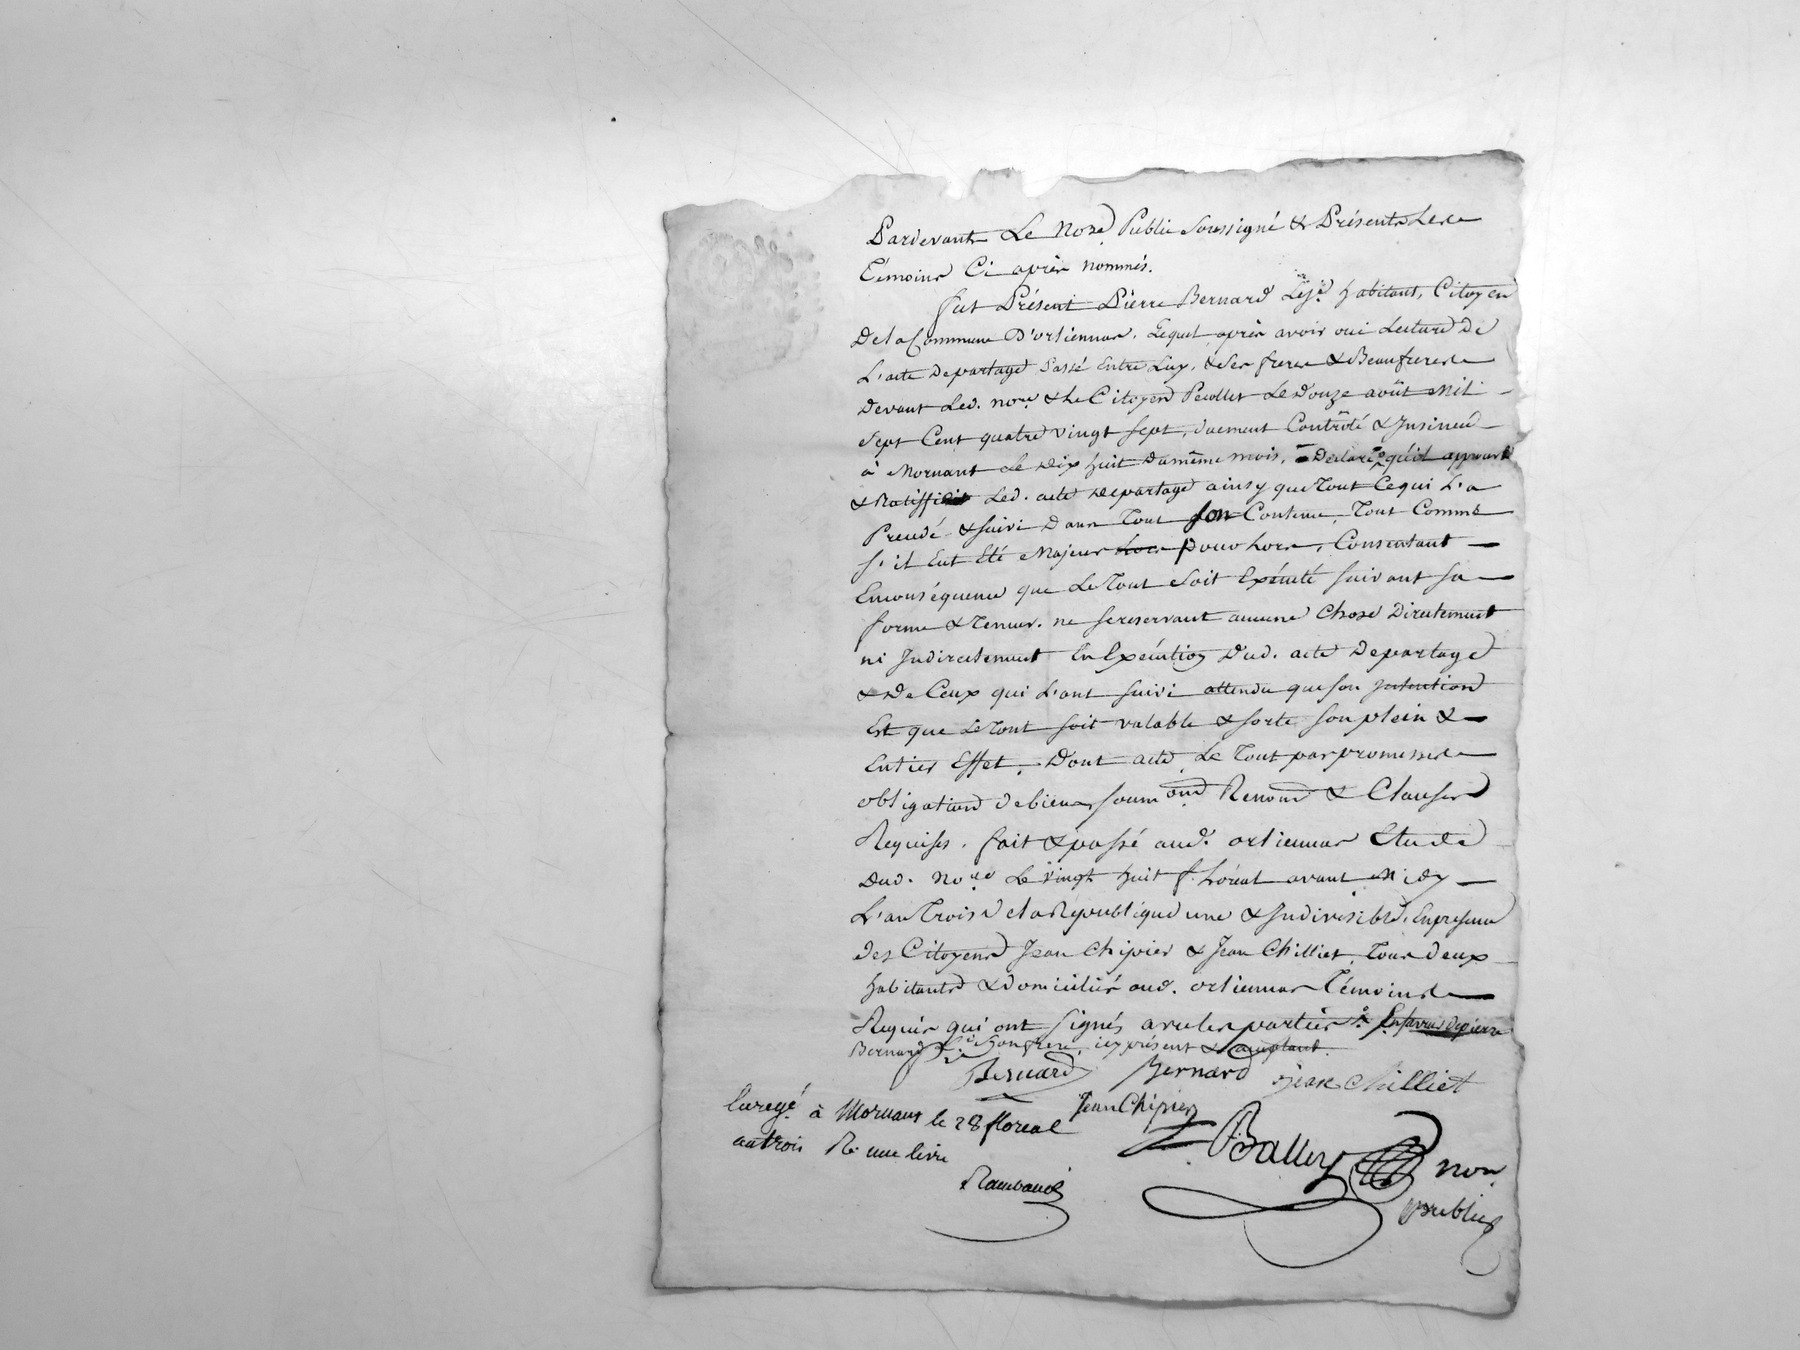 Pardevant Le Nore Public Soussigné & Présents Les
Témoins Ci après nommés.
fut Présent Pierre Bernard Le Je habitant, Citoyen
De la Commune D'orliennas, Lequel après avoir oui Lecture De
L'acte Departage Passé Entre Luy, & Ses freres & Beaufreres
Devant Led. nore & Le Citoyen Pecollet Le Douze août Mil
Sept Cent quatre vingt Sept, duement Contrôlé & Insinué
à Mornant Le Dix huit Du même mois, Déclare qu'il approuve
& Ratiffie Led. acte Departage ainsy que Tout Cequi L'a
Précédé & Suivi Dans Tout Son Contenu, Tout Comme
S'il Eut Eté Majeur Lors Pour Lors, Consentant
Enconséquence que Le Tout Soit Exécuté Suivant Sa
forme & Teneur. ne Sereservant aucune Chose Directement
ni Indirectement En Exécution Dud. acte Departage
& De Ceux qui L'ont Suivi attendu que Son Intention
Est que Le Tout Soit valable & Sorte Son plein &
Entier Effet, Dont acte, Le Tout par promesses
obligation De biens, Soumond Renond & Clauses
Requises. fait & passé aud. orliennas Etude
Dud. Nore Le vingt huit floréal avant Midy
L'an Trois De la République une & Indivisible, En présence
Des Citoyens Jean Chipier & Jean Chilliet, Tous Deux
habitants & Domiciliés aud. orliennas Témoins
Requis qui ont Signés avec les parties & En faveur de pierre
Bernard Son frere, icy présent & acceptant.
Bernard Bernard Jean Chilliet
Jean Chipier
Enregé à Mornant le 28 floreal
an trois R. une livre
Rambaud
Balley nore
public